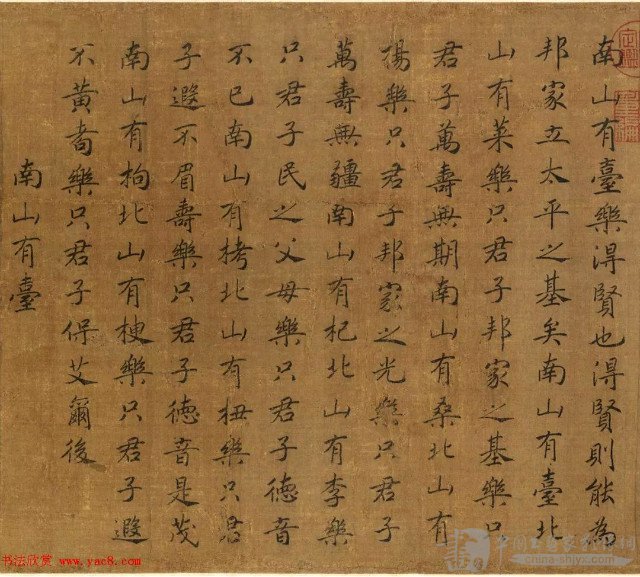 南山有臺樂得賢也得賢則能為
邦家立太平之基矣南山有臺北
山有萊樂只君子邦家之基樂只
君子萬壽無期南山有桑北山有
楊樂只君子邦家之光樂只君子
萬壽無疆南山有杞北山有李樂
只君子民之父母樂只君子德音
不已南山有栲北山有杻樂只君
子遐不眉壽樂只君子德音是茂
南山有枸北山有楰樂只君子遐
不黃耇樂只君子保艾爾後
南山有臺
书法欣赏 www.yac8.com